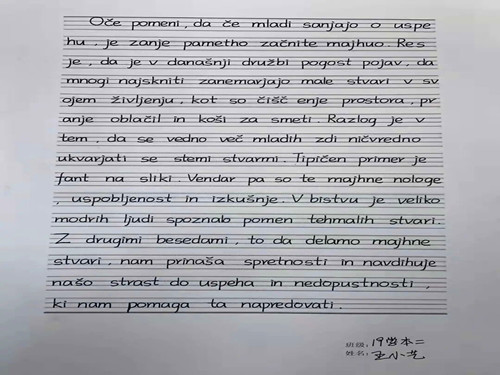 Oče pomeni, da če mladi sanjajo o uspe
hu, je zanje pametho začnite majhuo. Res
je, da je v današnji družbi pogost pojav, da
mnogi najskniti zanemarjajo male stvari v sv
ojem življenju, kot so čišč enje prostora, pr
anje oblačil in koši za smeti. Razlog je v
tem, da se vedno več mladih zdi ničvredno
ukvarjati se stemi stvarmi. Tipičen primer je
fant na sliki. Vendar pa so te majhne nologe
, uspobljenost in izkušnje. V bistvu je veliko
modrih ljudi spoznab pomen tehmalih stvari.
Z drugimi besedami, to da delamo majhne
stvari, nam prinaša spretnosti in navdihuje
našo strast do uspeha in nedopustnosti,
ki nam pomaga ta napredovati.
班级: 19 本二
姓名: 王小艺